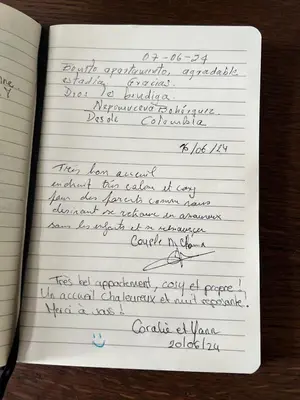 07-06-24
Bonito apartamento, agradable
estadia, Gracias.
Dios les bendiga.
Nepomuceva Bohórquez
Desde Colombia
16/06/24
Très bon acceuil
endroit très calme et cosy
pour des parents comme nous
désirant se retrouver en amoureux
sans les enfants et se retrouver
Couple
Très bel appartement, cosy et propre!
Un accueil chaleureux et nuit reposante.
Merci à vous!
Coralie et Yann
20/06/24